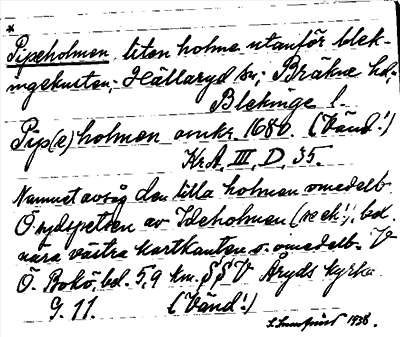 *
Pipeholmen, liten holme utanför blek-
ingekusten; Hällaryd sn; Bräkne hd;
Blekinge l.
Pip(e)holmen omkr. 1680. (Vänd!)
KrA. III. D. 35.
Namnet avsåg den lilla holmen omedelb.
Ö sydspetsen av Ideholmen (se ek!), bel.
nära västra kartkanten o. omedelb. V
Ö. Bokö, bel. 5,9 km. SSV Åryds kyrka.
G. 11. (Vänd!)
1938.